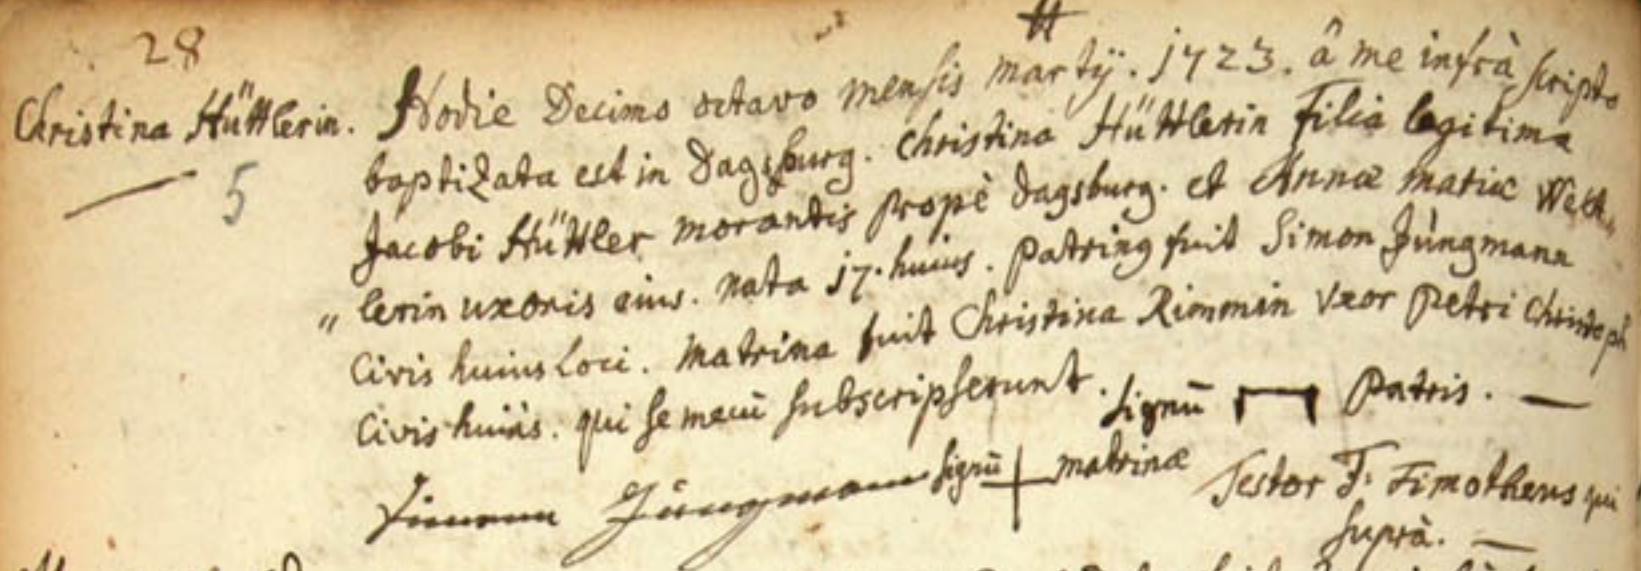 28
Christina Hüttlerin.
5
Hodie Decimo octavo mensis martÿ. 1723. â me infrà scripto
baptizata est in Dagsburg. Christina Hüttlerin filia legitima
Jacobi Hüttler morantis propè Dagsburg. et Annæ mariæ
„ lerin uxoris eius. nata 17. huius. patrinus fuit Simon Jüngmann
Civis huius loci. matrina fuit Christina Rimmin Vxor petri Christoph
Civis huius. qui se mecū subscripserunt. signū patris.
Simon Jüngmann signū matrinæ Testor F. Timotheus qui
suprà.